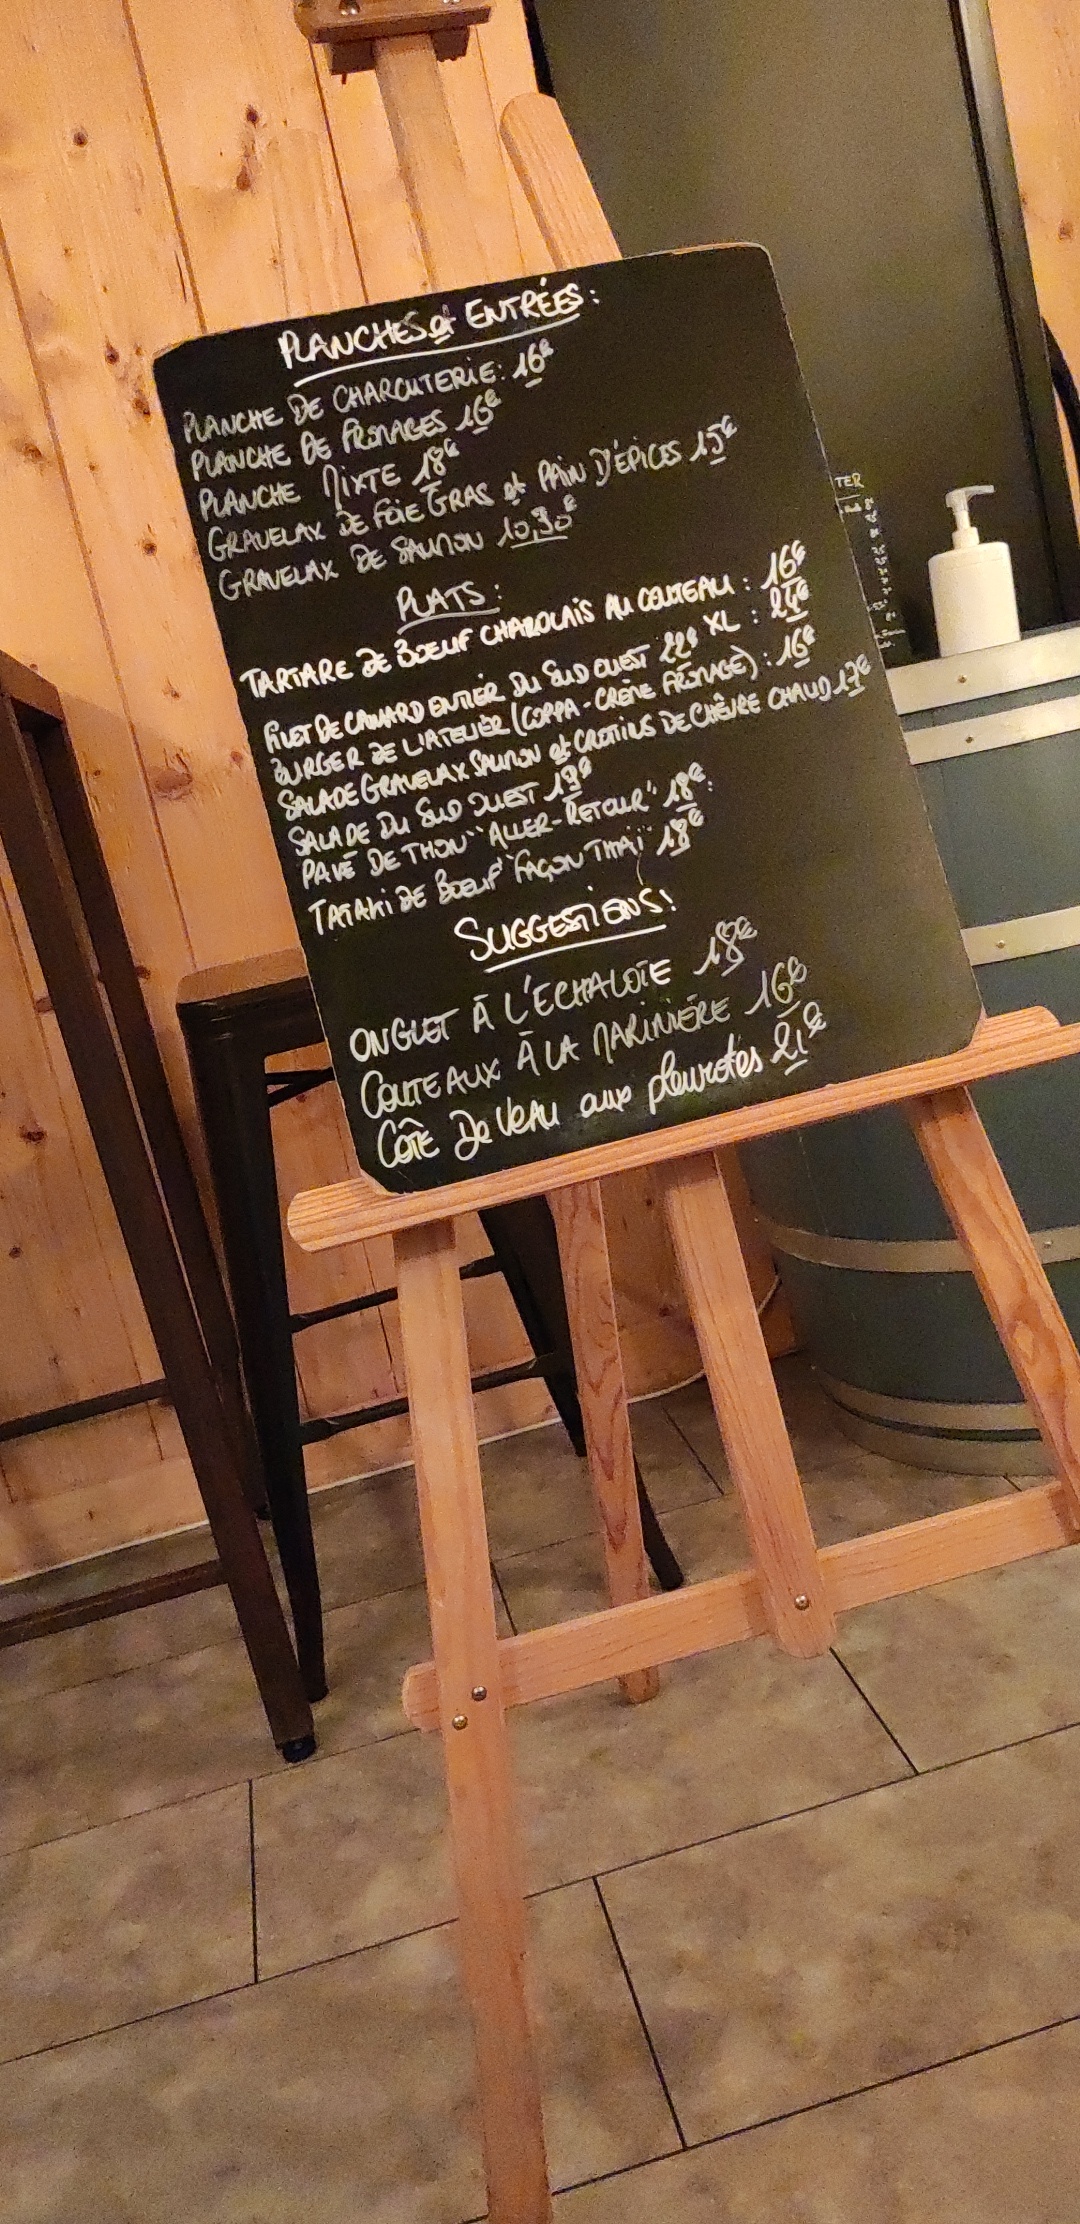 PLANCHES et ENTRÉES :
PLANCHE DE CHARCUTERIE : 16€
PLANCHE DE FROMAGES 16€
PLANCHE MIXTE 18€
GRAVELAX DE FOIE GRAS et PAIN D'ÉPICES 15€
GRAVELAX DE SAUMON 10,90€
PLATS :
TARTARE DE BOEUF CHAROLAIS AU COUTEAU : 16€
XL : 24€
FILET DE CANARD ENTIER DU SUD OUEST 22€
BURGER DE L'ATELIER (COPPA - CRÈME FROMAGE) : 16€
SALADE GRAVELAX SAUMON et CROTTINS DE CHÈVRE CHAUD 17€
SALADE DU SUD OUEST 19€
PAVÉ DE THON "ALLER-RETOUR" 18€
TATAKI DE BOEUF "FAÇON THAÏ" 18€
SUGGESTIONS :
ONGLET À L'ECHALOTE 18€
COUTEAUX À LA MARINIÈRE 16€
CÔTE De VEAU aux pleurotes 21€
TER